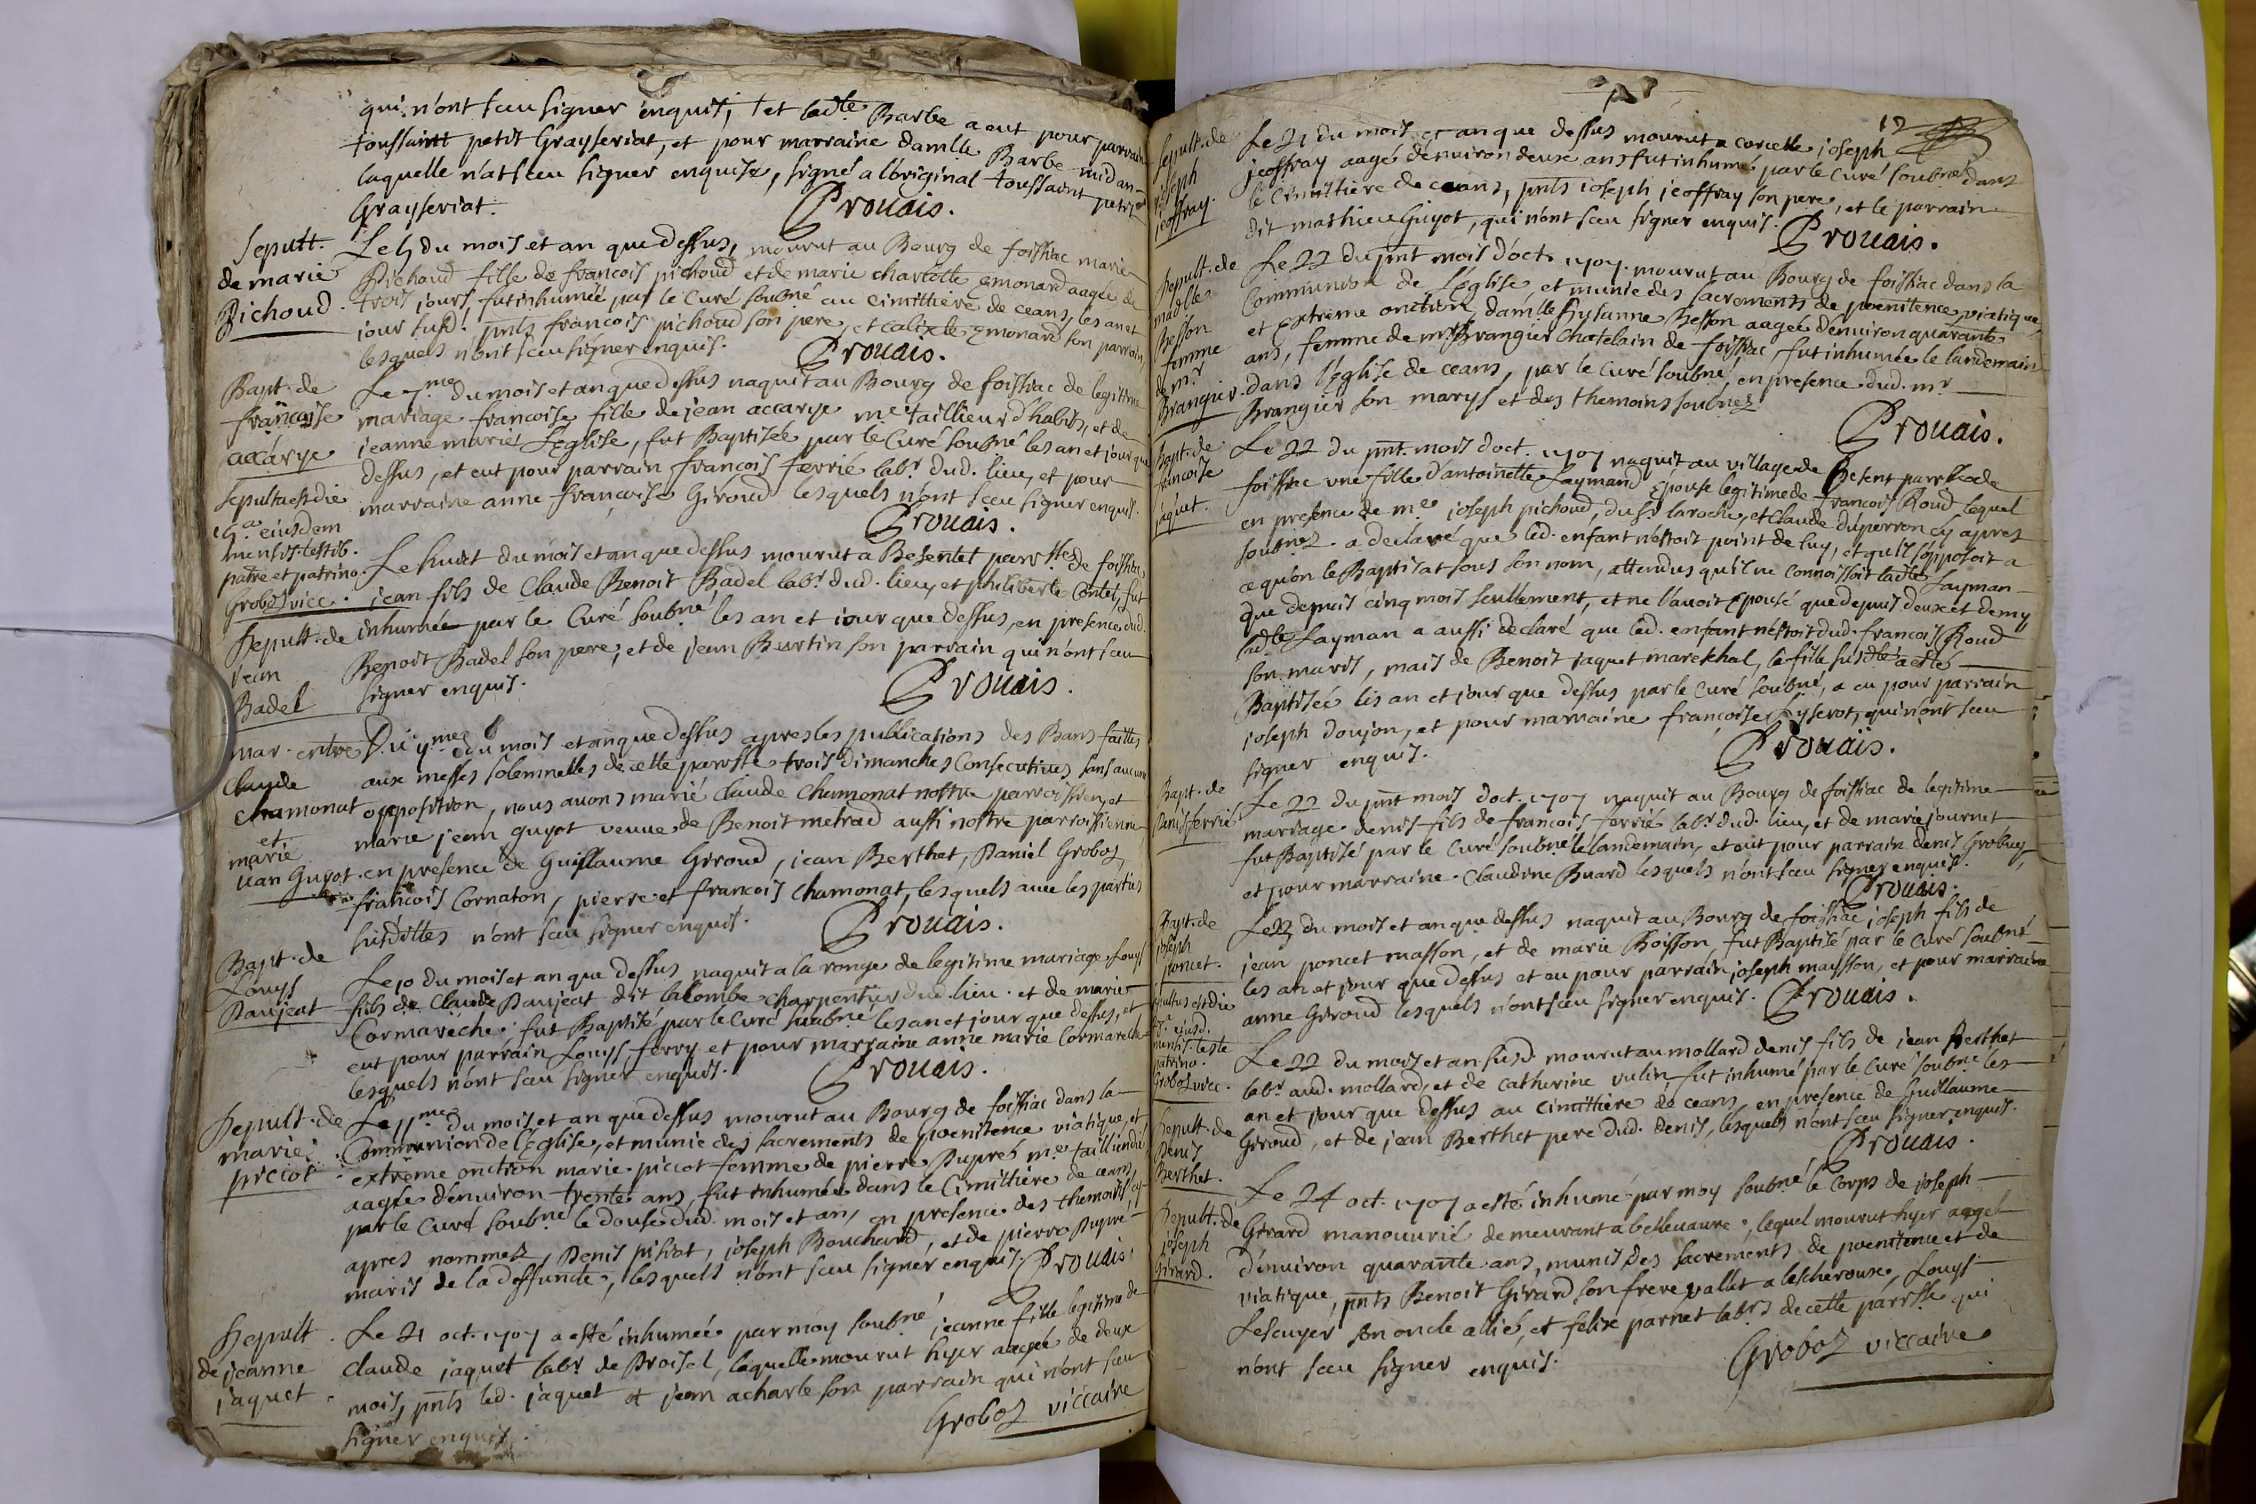 qui n'ont sceu signer enquis, et lad.te Barbe a eut pour parrain
toussaint petit Grayseriat, et pour marraine damlle Barbe midan
laquelle n'at sceu signer enquise, signé a l'original toussaint petit
Grayseriat. Prouais.
Sepult.
de marie
Pichoud.
Le 5 du mois et an que dessus, mourut au Bourg de foissiac marie
Pichoud fille de francois pichoud et de marie charlotte emonard aagée de
trois jours, fut inhumée par le Curé soubné au cimittiere de ceans, les an et
jour susd. pnts francois pichoud son pere, et calixte emonard son parrain,
lesquels n'ont sceu signer enquis. Prouais.
Bapt. de
francoise
accarye
Le 7.me du mois et an que dessus naquit au Bourg de foissiac de legitime
mariage francoise fille de jean accarye me taillieur d'habits, et de
jeanne marie Leglise, fut Baptisée par le Curé soubné les an et jour que
dessus, et eut pour parrain francois ferrié labr dud. lieu, et pour
marraine anne francoise Giroud lesquels n'ont sceu signer enquis.
Prouais.
Sepulta est die
ejusdem
mensis testib.
patre et patrino.
Groboz vicc.
Sepult. de
jean
Badel
Le huict du mois et an que dessus mourut a Besentet parrsse de foissiac
jean fils de Claude Benoit Badel labr dud. lieu, et philiberte Contet, fut
inhumée par le Curé soubné les an et jour que dessus, en presence dud.
Benoit Badel son pere, et de jean Burtin son parrain qui n'ont sceu
signer enquis. Prouais.
mar. entre
Claude
Chamonat
et
marie
jean Guyot.
Du 9.me du mois et an que dessus apres les publications des Bans faittes
aux messes solemnelles de cette parrsse trois dimanches Consecutives sans aucune
opposition, nous avons marié Claude Chamonat nostre parroissien, et
marie jean guyot veuve de Benoit metrad aussi nostre parroissienne
en presence de Guillaume Giroud, jean Berthet, Daniel Groboz,
francois Cornaton, pierre et francois Chamonat, lesquels avec les parties
susdittes n'ont sceu signer enquis. Prouais.
Bapt. de
Louys
Daujeat
Le 10 du mois et an que dessus naquit a la ronge de legitime mariage Louys
fils de Claude Daujeat dit lalombe charpentier dud. lieu. et de marie
Cormareche. fut Baptisé par le Curé soubné les an et jour que dessus, et
eut pour parrain Louys ferry et pour marraine anne marie Cormareche
lesquels n'ont sceu signer enquis. Prouais.
Sepult. de
marie
piciot
Le 11.me du mois et an que dessus mourut au Bourg de foissiac dans la
Communion de l'eglise, et munie des sacrements de poenitence viatique, et
extrême onction marie piciot femme de pierre Dupré me
aagée d'environ trente ans, fut inhumée dans le Cimittiere de ceans,
par le Curé soubné le douse dud. mois et an, en presence des themoins cy
apres nommez, Denis pisrot, joseph Bouchard, et de pierre Dupré
maris de la deffuncte, lesquels n'ont sceu signer enquis. Prouais.
Sepult
de jeanne
jaquet
Le 21 oct. 1707 a esté inhumée par moy soubné, jeanne fille legitime de
claude jaquet labr de Broisel, laquelle mourut hyer aagée de deux
mois, pnts led. jaquet et jean acharle son parrain qui n'ont sceu
signer enquis. Groboz viccaire
12
Sepult. de
joseph
jeoffray.
Le 21 du mois et an que dessus mourut a corcelle joseph
jeoffray aagé d'environ deux ans fut inhumé par le Curé soubné dans
le Cimittiere de ceans, pnts joseph jeoffray son pere, et le parrain
dit mathieu Guyot, qui n'ont sceu signer enquis. Prouais.
Sepult. de
madlle
Besson
femme
de mr
Brangier.
Le 22 du pnt mois d'oct. 1707. mourut au Bourg de foissiac dans la
Communion de l'eglise et munie des sacrements de poenitence, viatique,
et extreme onction, damlle Sysanne Besson aagée d'environ quarante
ans, femme de mr Brangier Chatelain de foissiac, fut inhumée le landemain
dans l'eglise de ceans, par le Curé soubné, en presence dud. mr
Brangier son marys et des themoins soubnez
Prouais.
Bapt. de
francoise
jaquet.
Le 22 du pnt. mois d'oct. 1707 naquit au village de Besent parrsse de
foissiac une fille d'antoinette Laymand Epouse legitime de francois Roud lequel
en presence de me joseph pichoud, du sr laroche, et Claude duperron cy apres
soubnez a declaré que led. enfant n'estoit point de luy, et qu'il s'opposoit a
ce qu'on le Baptisat sous son nom, attendus qu'il ne connoissoit lad.te Layman
que depuis cinq mois seullement, et ne l'avoit Epousé que depuis deux et demy
lad.te Layman a aussi declaré que led. enfant n'estoit dud. francois Roud
son maris, mais de Benoit jaquet mareschal, la fille susd.te a esté
Baptisée les an et jour que dessus par le Curé soubné, a eu pour parrain
joseph doujon, et pour marraine francoise Lyserot, qui n'ont sceu
signer enquis. Prouais.
Bapt. de
Denis ferrié
Le 22 du pnt mois d'oct. 1707 naquit au Bourg de foissiac de legitime
mariage denis fils de francois ferrié labr dud. lieu, et de marie journet
fut Baptisé par le Curé soubné le landemain, et eut pour parrain denis Grobuy,
et pour marraine Claudine Buard lesquels n'ont sceu signer enquis.
Prouais.
Bapt. de
joseph
poncet.
Le 23 du mois et an que dessus naquit au Bourg de foissiac joseph fils de
jean poncet masson, et de marie Boisson, fut Baptisé par le Curé soubné
les an et jour que dessus et eu pour parrain joseph maysson, et pour marraine
anne Giroud lesquels n'ont sceu signer enquis. Prouais.
Sepultus est die
ejusd.
mensis teste
patrino.
Groboz vicc.
Sepult. de
Denis
Berthet.
Le 22 du mois et an susd. mourut au mollard denis fils de jean Berthet
labr aud. mollard, et de catherine vulin, fut inhumé par le Curé soubné les
an et jour que dessus au cimittiere de ceans, en presence de Guillaume
Giroud, et de jean Berthet pere dud. denis, lesquels n'ont sceu signer enquis.
Prouais.
Sepult. de
joseph
Girard.
Le 24 oct. 1707 a esté inhumé par moy soubné le Corps de joseph
Girard manouvrié demeurant a bellevavre, lequel mourut hyer aagé
d'environ quarante ans, munis des sacrements de poenitence et de
viatique, pnts Benoit Girard son frere vallet a lescheroux, Louys
Lescuyer son oncle allié, et felix parnet labrs de cette parrsse qui
n'ont sceu signer enquis. Groboz viccaire